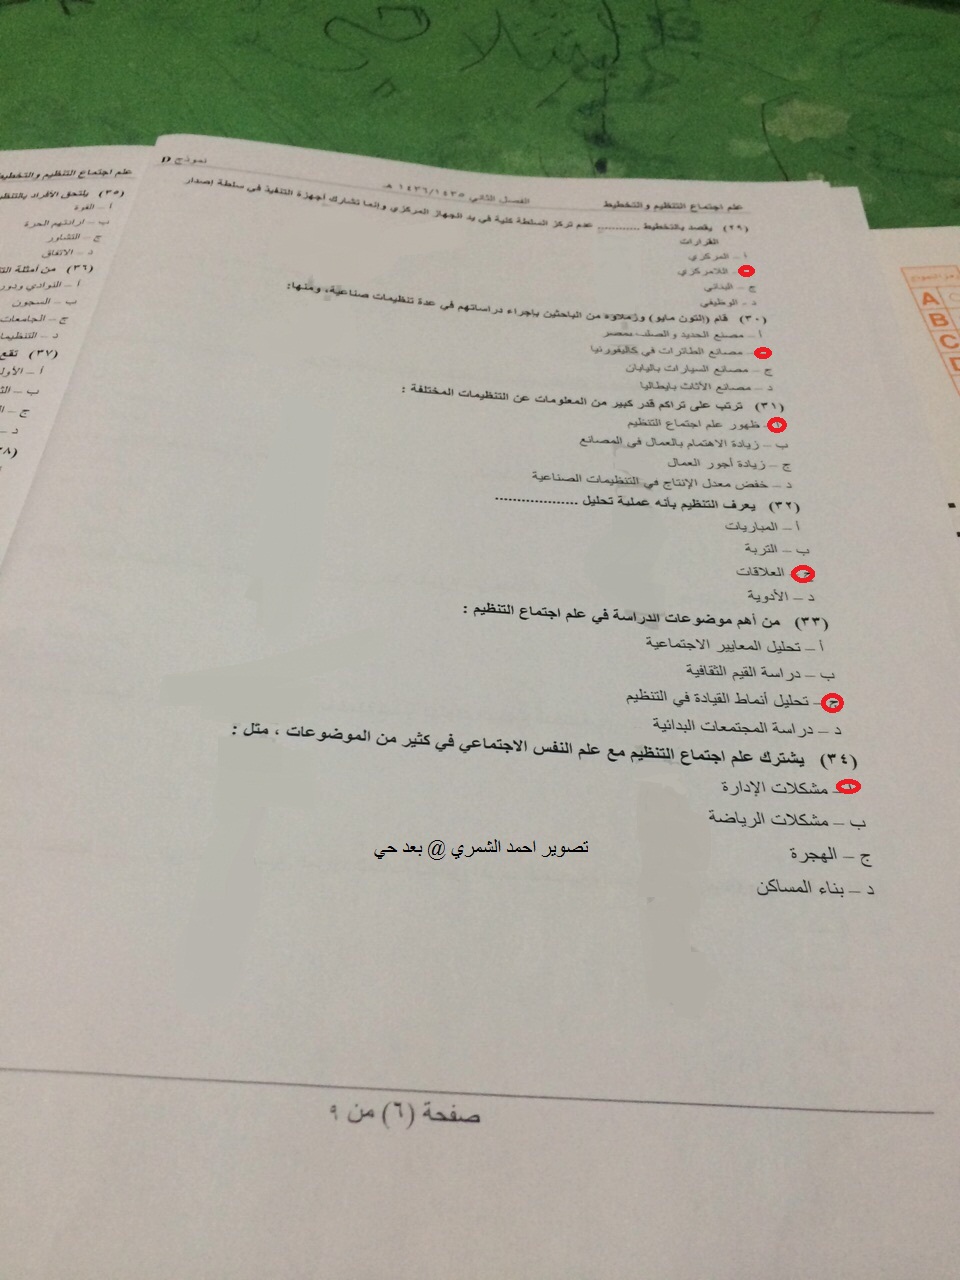 علم اجتماع التنظيم والتخطيط
الفصل الثاني ١٤٣٥/١٤٣٦ هـ
نموذج D
(٢٩) يقصد بالتخطيط ............ عدم تركز السلطة كلية في يد الجهاز المركزي وإنما تشارك أجهزة التنفيذ في سلطة إصدار
القرارات
أ – المركزي
– اللامركزي
ج – البنائي
د – الوظيفي
(٣٠) قام (إلتون مايو) وزملاؤه من الباحثين بإجراء دراساتهم في عدة تنظيمات صناعية، ومنها:
أ – مصنع الحديد والصلب بمصر
– مصانع الطائرات في كاليفورنيا
ج – مصانع السيارات باليابان
د – مصانع الأثاث بإيطاليا
(٣١) ترتب على تراكم قدر كبير من المعلومات عن التنظيمات المختلفة :
أ – ظهور علم اجتماع التنظيم
ب – زيادة الاهتمام بالعمال في المصانع
ج – زيادة أجور العمال
د – خفض معدل الإنتاج في التنظيمات الصناعية
(٣٢) يعرف التنظيم بأنه عملية تحليل ...................
أ – المباريات
ب – التربة
ج – العلاقات
د – الأدوية
(٣٣) من أهم موضوعات الدراسة في علم اجتماع التنظيم :
أ – تحليل المعايير الاجتماعية
ب – دراسة القيم الثقافية
ج – تحليل أنماط القيادة في التنظيم
د – دراسة المجتمعات البدائية
(٣٤) يشترك علم اجتماع التنظيم مع علم النفس الاجتماعي في كثير من الموضوعات ، مثل :
أ – مشكلات الإدارة
ب – مشكلات الرياضة
ج – الهجرة
د – بناء المساكن
تصوير احمد الشمري @ بعد حي
صفحة (٦) من ٩
علم اجتماع التنظيم والتخطيط
(٣٥) يلتحق الأفراد بالتنظيم
أ – القوة
ب – ارادتهم الحرة
ج – التشاور
د – الاتفاق
(٣٦) من أمثلة
أ – النوادي ودور
ب – السجون
ج – الجامعات
د – التنظيمات
(٣٧) تقع
أ –
ب –
ج –
د –
A
B
C
D